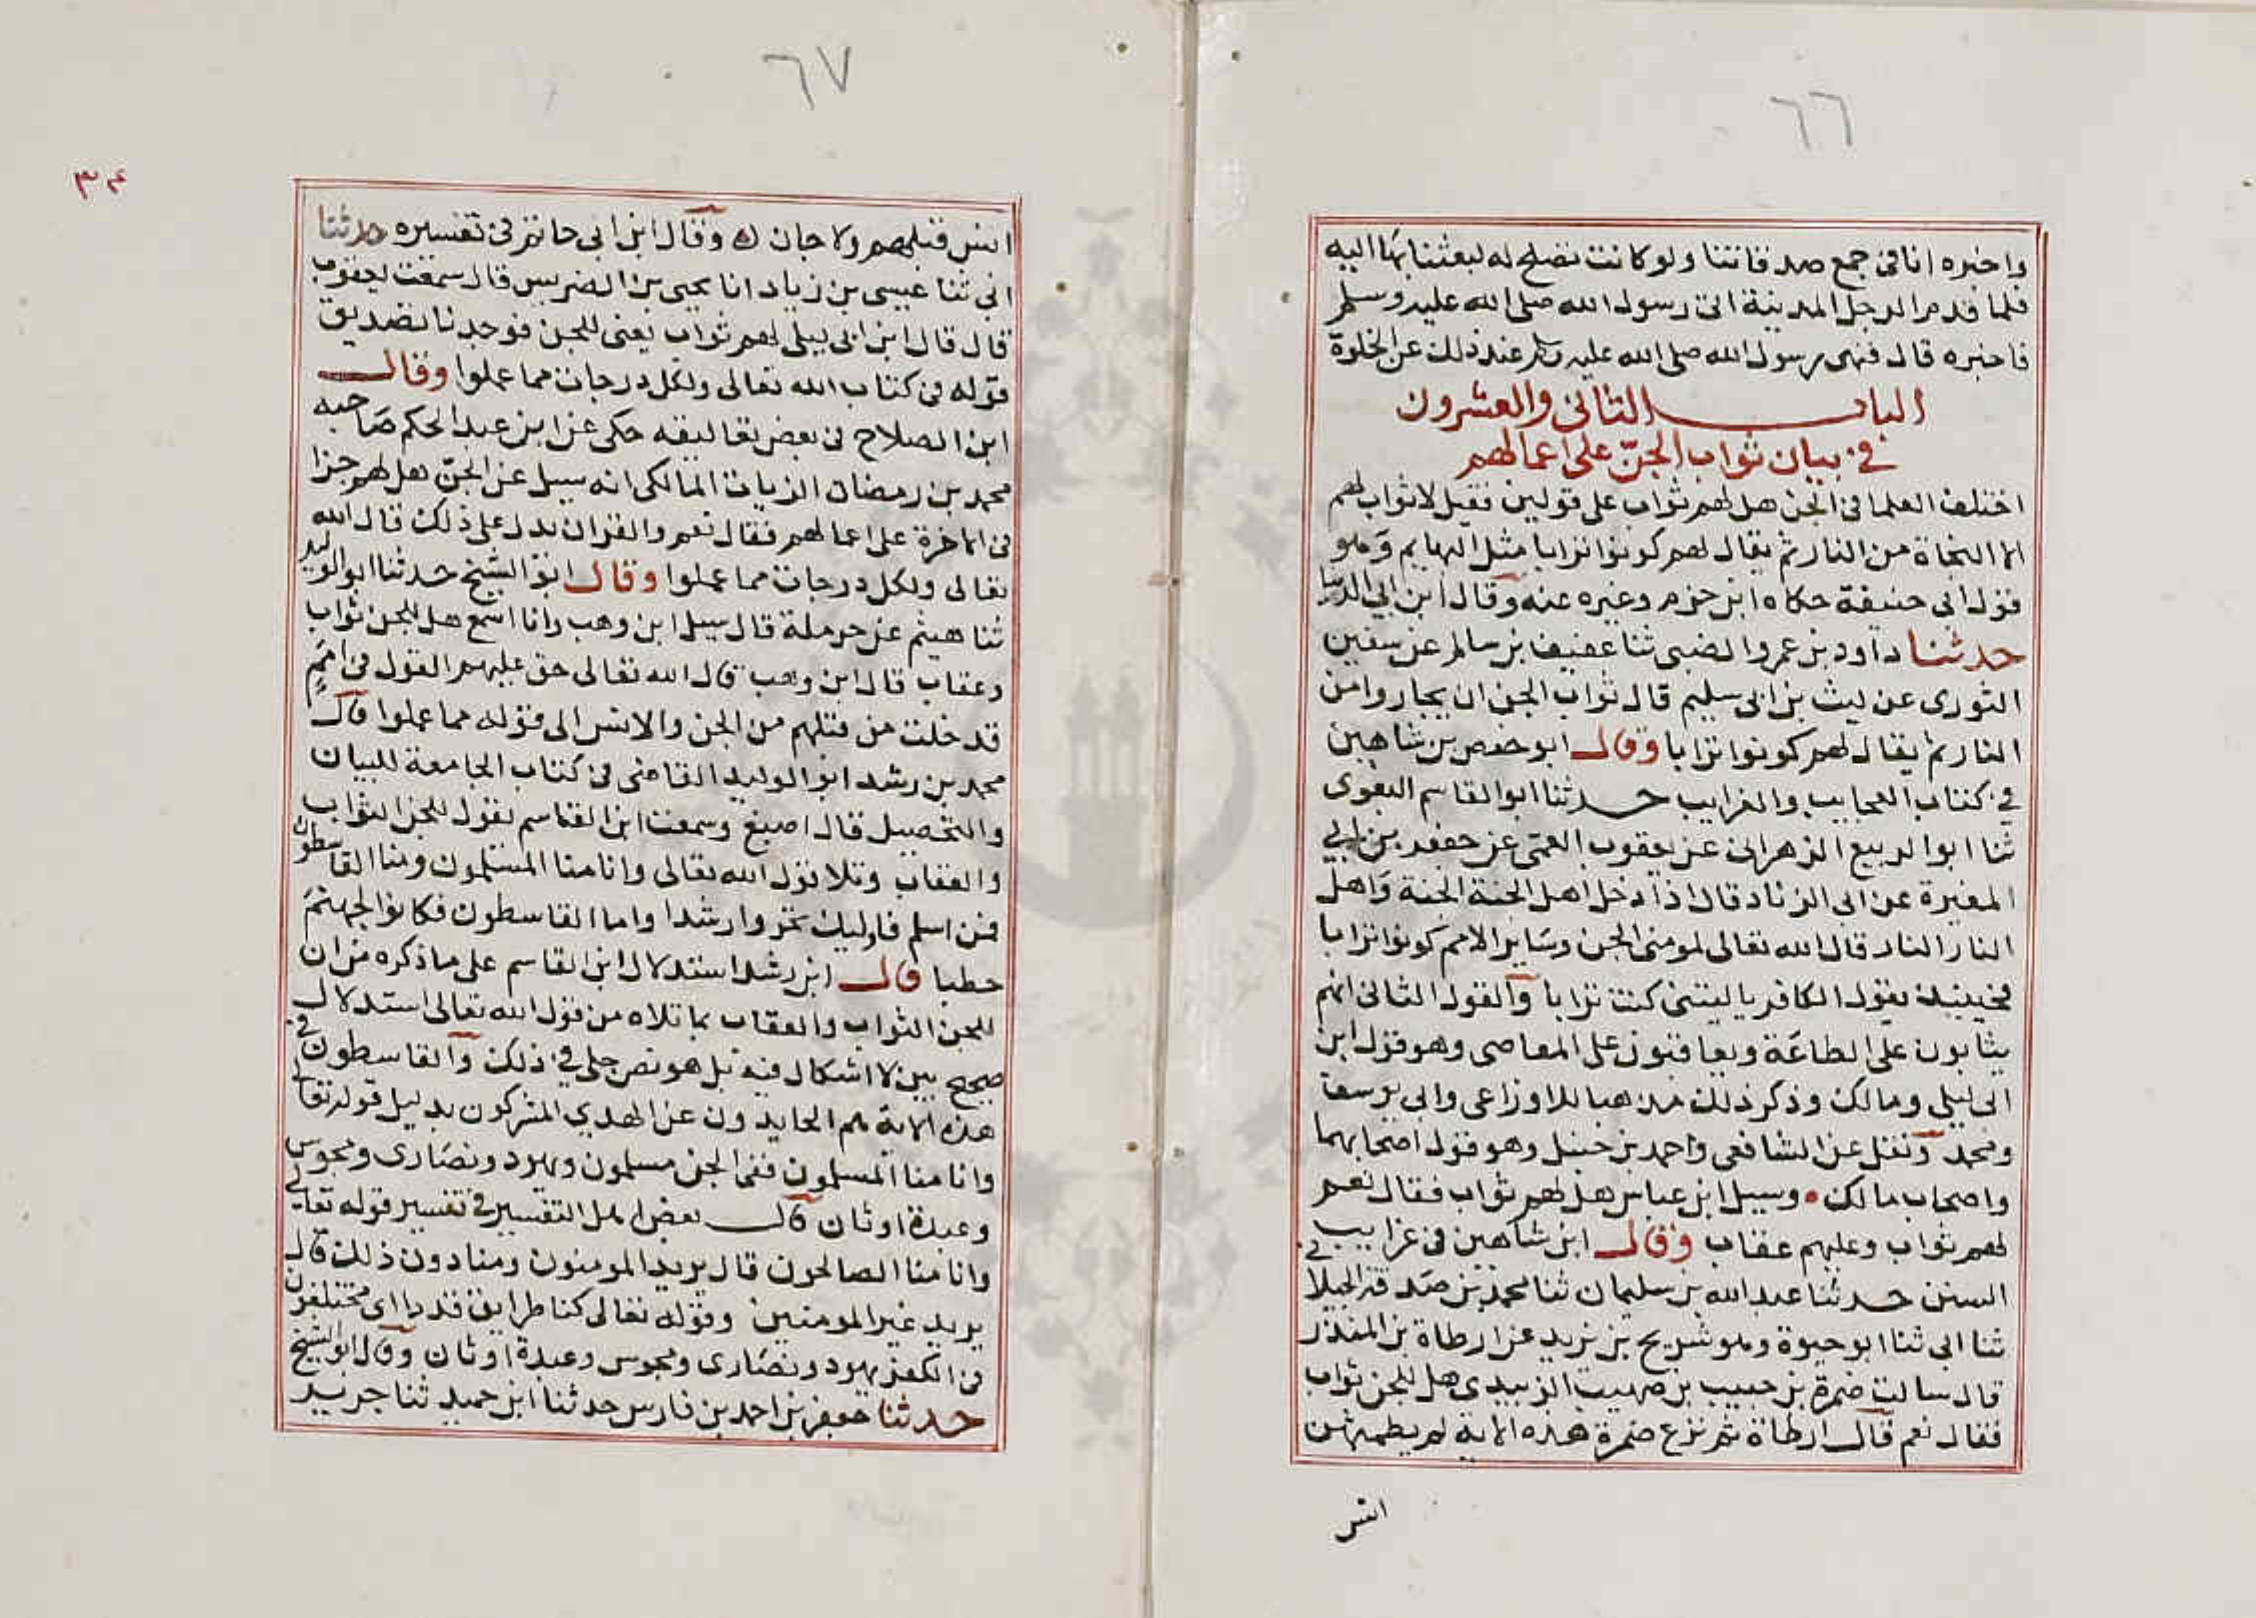 ٦٦
واخبره انا فى جمع صدقاتنا ولو كانت تصلح له لبعثنا بها اليه
فلما قدم الرجل المدينة اتى رسول الله صلى الله عليه وسلم
فاخبره قال فنهى رسول الله صلى الله عليه وسلم عند ذلك عن الخلوة
الباب الثانى والعشرون
فى بيان ثواب الجنّ على اعمالهم
اختلف العلما فى الجن هل لهم ثواب على قولين فقيل لا ثواب لهم
الا النجاة من النار ثم يقال لهم كونوا ترابا مثل البهايم وهو
قول ابى حنيفة حكاه ابن حزم وغيره عنه وقال ابن ابى الدنيا
حدثنا داود بن عمرو الضبى ثنا عفيف بن سالم عن سفين
الثورى عن ليث بن ابى سليم قال ثواب الجن ان يجاروا من
النار ثم يقال لهم كونوا ترابا وقال ابو حفص بن شاهين
فى كتاب العجايب والغرايب حدثنا ابو القاسم البغوى
ثنا ابو الربيع الزهرانى عن يعقوب القمى عن جعفر بن ابى
المغيرة عن ابى الزناد قال اذا دخل اهل الجنة الجنة واهل
النار النار قال الله تعالى لمومنى الجن وساير الامم كونوا ترابا
فحينيذ يقول الكافر يا ليتنى كنت ترابا والقول الثانى انهم
يثابون على الطاعة ويعاقبون على المعاصى وهو قول ابن
ابى ليلى ومالك وذكر ذلك مذهبا للاوزاعى وابى يوسف
ومحمد ونقل عن الشافعى واحمد بن حنبل وهو قول اصحابهما
واصحاب مالك ٠ وسيل ابن عباس هل لهم ثواب فقال نعم
لهم ثواب وعليهم عقاب وقال ابن شاهين فى غرايب
السنن حدثنا عبد الله بن سليمان ثنا محمد بن صدقة الجبلانى
ثنا ابى ثنا ابو حيوة وهو شريح بن يزيد عن ارطاة بن المنذر
قال سالت ضمرة بن حبيب بن صهيب الزبيدى هل للجن ثواب
فقال نعم قال ارطاة ثم نزع ضمرة هذه الاية لم يطمثهن
انس
٦٧
٣٤
انس قبلهم ولا جان ه وقال ابن ابى حاتم فى تفسيره حدثنا
ابى ثنا عيسى بن زياد انا يحيى بن الضريس قال سمعت يعقوب
قال قال ابن ابى ليلى لهم ثواب يعنى للجن فوجدنا تصديق
قوله فى كتاب الله تعالى ولكل درجات مما عملوا وقال
ابن الصلاح فى بعض تعاليقه حكى عن ابن عبد الحكم صاحبه
محمد بن رمضان الزيات المالكى انه سيل عن الجنّ هل لهم جزا
فى الاخرة على اعمالهم فقال نعم والقران يدل على ذلك قال الله
تعالى ولكل درجات مما عملوا وقال ابو الشيخ حدثنا ابو الوليد
ثنا هيثم عن حرملة قال سيل ابن وهب وانا اسمع هل للجن ثواب
وعقاب قال ابن وهب قال الله تعالى حق عليهم القول فى امم
قد خلت من قبلهم من الجن والانس الى قوله مما عملوا قال
محمد بن رشد ابو الوليد القاضى فى كتاب الجامعة للبيان
والتحصيل قال اصبغ وسمعت ابن القاسم يقول للجن الثواب
والعقاب وتلا قول الله تعالى وانا منا المسلمون ومنا القاسطون
فمن اسلم فاوليك تحروا رشدا واما القاسطون فكانوا لجهنم
حطبا قال ابن رشد استدلال ابن القاسم على ما ذكره من ان
للجن الثواب والعقاب بما تلاه من قول الله تعالى استدلال
صحيح بين لا اشكال فيه بل هو نص جلى فى ذلك والقاسطون فى
هذه الاية هم الحايدون عن الهدى المشركون بدليل قوله تعالى
وانا منا المسلمون ففى الجن مسلمون ويهود ونصارى ومجوس
وعبدة اوثان قال بعض اهل التفسير فى تفسير قوله تعالى
وانا منا الصالحون قال يريد المومنون ومنا دون ذلك قال
يريد غير المومنين وقوله تعالى كنا طرايق قددا اى مختلفون
فى الكفر يهود ونصارى ومجوس وعبدة اوثان وقال ابو الشيخ
حدثنا جعفر بن احمد بن فارس حدثنا ابن حميد ثنا جرير